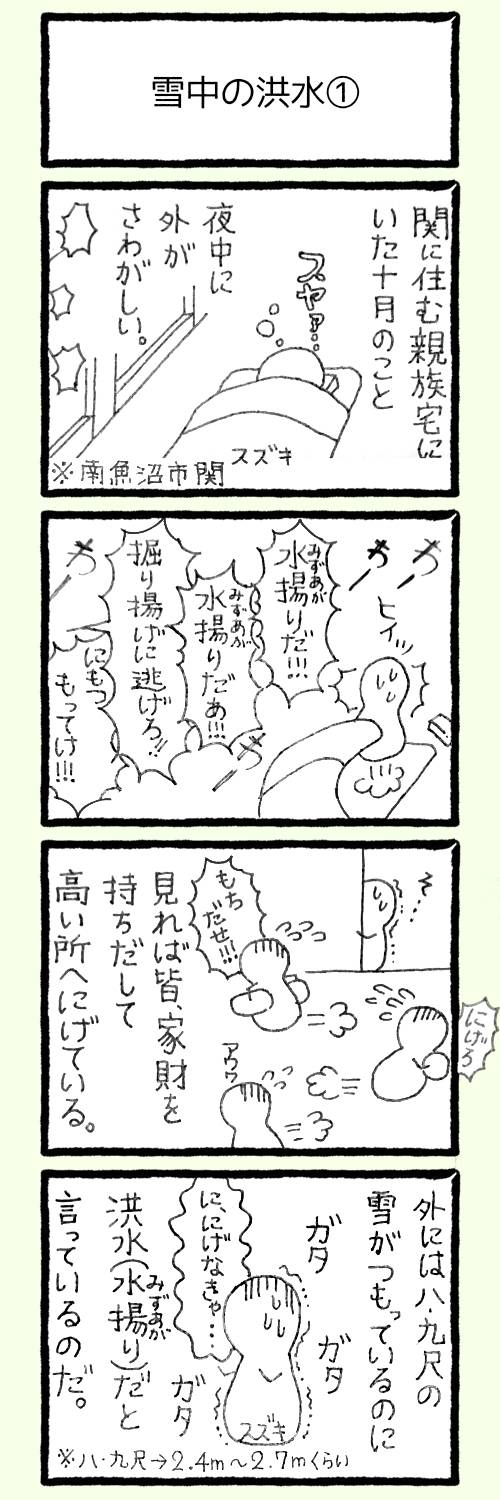 雪中の洪水①
関に住む親族宅に
いた十月のこと
スヤァ…
夜中に
外が
さわがしい。
スズキ
※南魚沼市関
ヒィッ
みずあが
水揚りだ!!!
みずあが
水揚りだぁ!!!
掘り揚げに逃げろ!!
にもつ
もってけ!!!
そ…
もち
だせ!!!
にげろ
アワワ
見れば皆、家財を
持ちだして
高い所へにげている。
外には八・九尺の
雪がつもっているのに
ガタ
ガタ
ガタ
に、にげなきゃ…
スズキ
みずあが
洪水(水揚り)だと
言っているのだ。
※八・九尺→2.4m～2.7mくらい